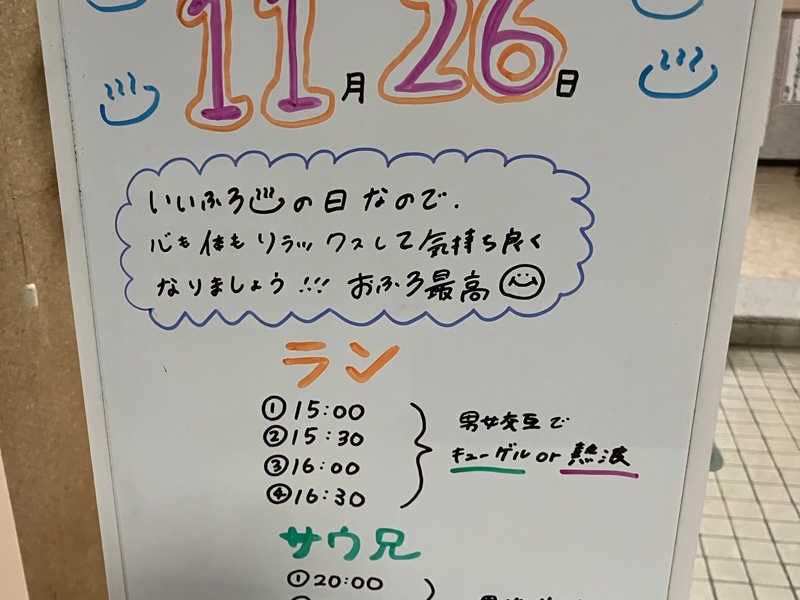 11月26日
いいふろ♨の日なので、
心も体もリラックスして気持ち良く
なりましょう!!! おふろ最高
ラン
①15:00
②15:30
③16:00
④16:30
男女交互で
キューゲル or 熱波
サウ兄
①20:00